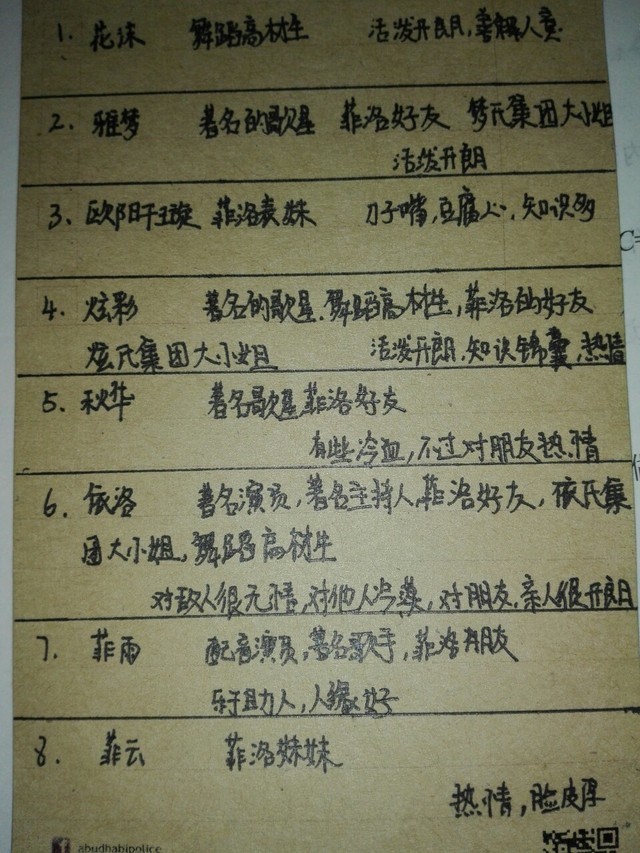 1. 花沫 舞蹈高材生 活泼开朗,善解人意
2. 雅梦 著名的歌星 菲洛好友 梦氏集团大小姐
活泼开朗
3. 欧阳玗璇 菲洛表妹 刀子嘴,豆腐心,知识多
4. 炫彩 著名的歌星.舞蹈高材生,菲洛的好友
炫氏集团大小姐 活泼开朗,知识锦囊,热情
5. 秋华 著名歌星,菲洛好友
有些冷血,不过对朋友热情
6. 依洛 著名演员,著名主持人,菲洛好友,依氏集
团大小姐,舞蹈高材生
对敌人很无情,对他人冷漠,对朋友,亲人很开朗
7. 菲雨 配音演员,著名歌手,菲洛朋友
乐于助人,人缘好
8. 菲云 菲洛妹妹
热情,脸皮厚
abudhabipolice